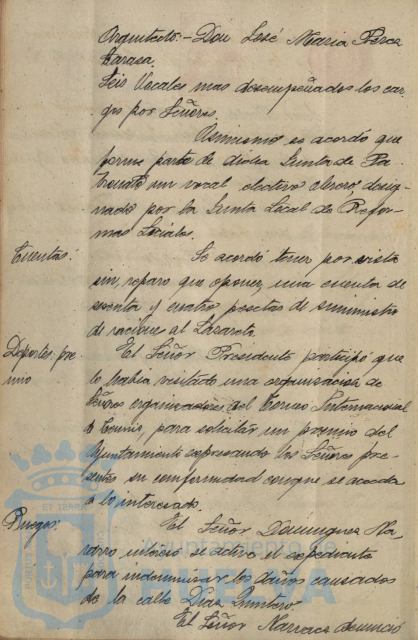 Arquitecto.- Don José María Perez
Carasa.
Seis Vocales mas desempeñados los car-
gos por Señores.
Asimismo se acordó que
forme parte de dicha Junta de Pa-
tronato un vocal electivo obrero, desig-
nado por la Junta Local de Refor-
mas Sociales.
Cuentas:
Se acordó tener por vista
sin reparo que oponer, una cuenta de
senta y cuatro pesetas de suministro
de al Lazareto.
Deportes, pre-
mio
El Señor Presidente participó que
le habia visitado una organización de
Señores organizadores del Torneo Internacional
de Tennis, para solicitar un premio del
Ayuntamiento expresando los Señores pre-
sentes su conformidad con que se acceda
a lo interesado.
Ruegos:
El Señor Dominguez Na-
varro interesó se active el expediente
para indemnizar los daños causados
de la calle Diaz Quintero.
El Señor Marraca denunció
ET TERRA
Ayuntamiento de
HUELVA